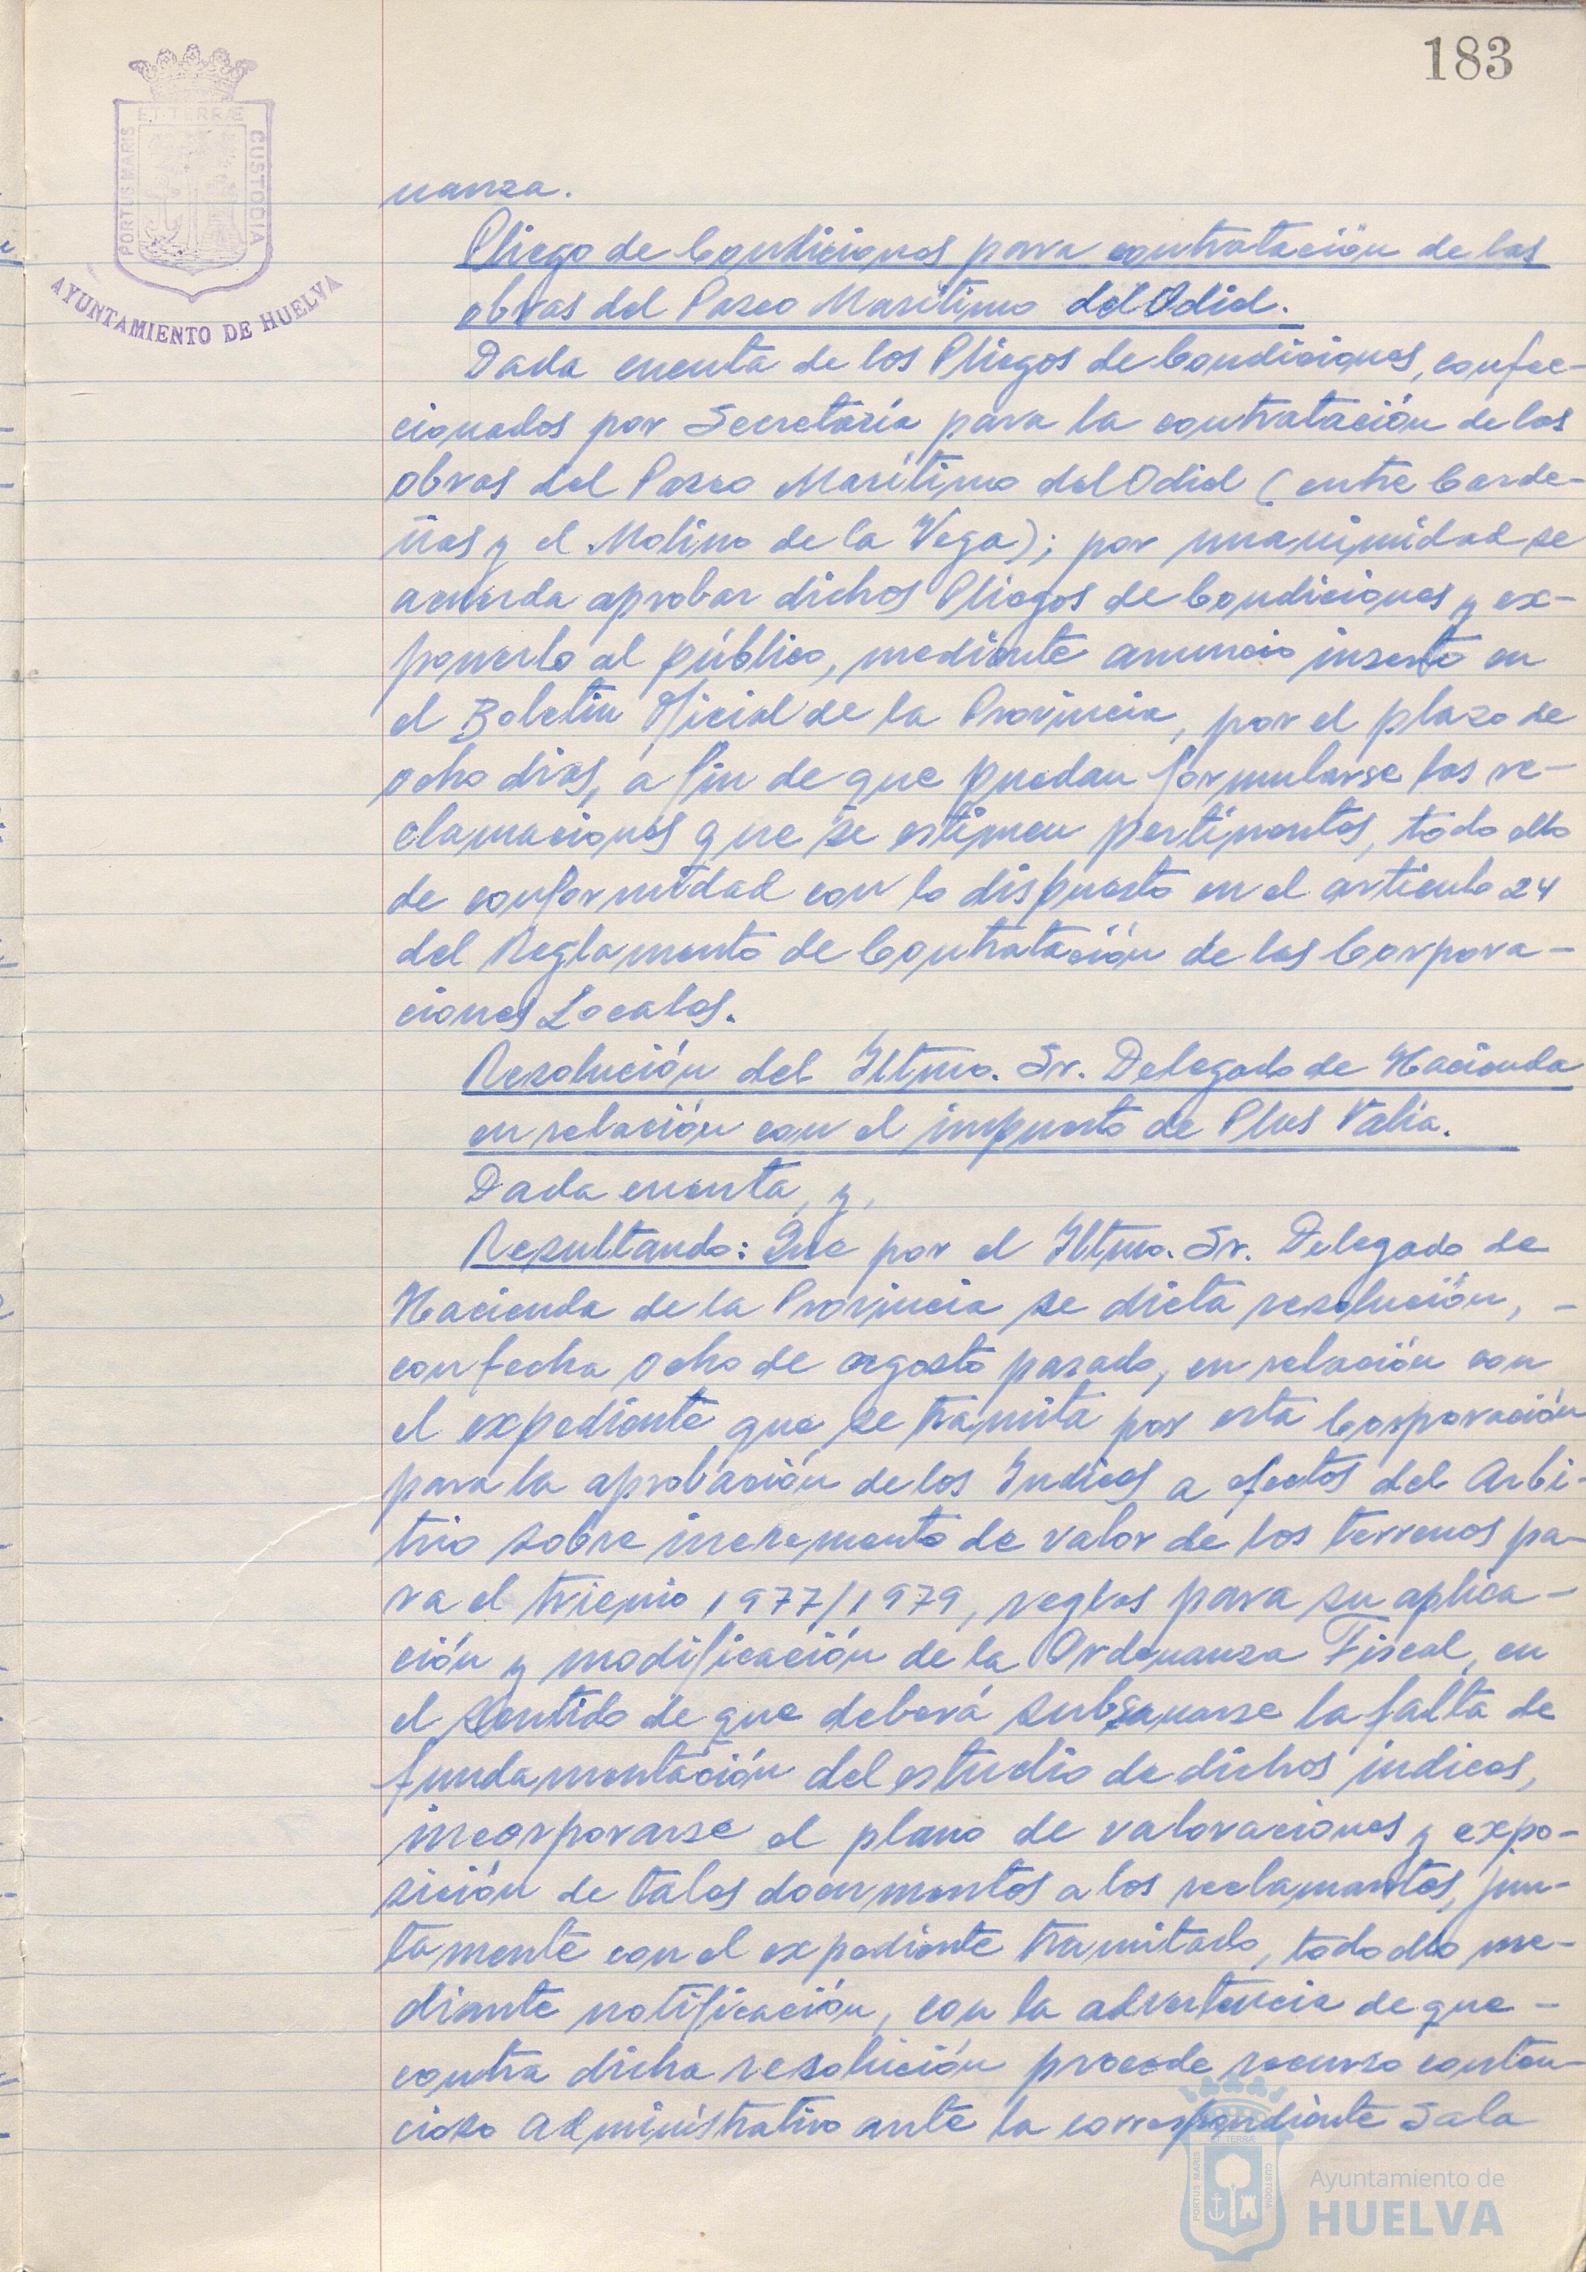 183
ET TERRÆ
PORTUS MARIS
CUSTODIA
AYUNTAMIENTO DE HUELVA
nanza.
Pliego de Condiciones para contratación de las
obras del Paseo Marítimo del Odiel.
Dada cuenta de los Pliegos de Condiciones, confec-
cionados por Secretaría para la contratación de las
obras del Paseo Marítimo del Odiel (entre Carde-
ñas y el Molino de la Vega); por unanimidad se
acuerda aprobar dichos Pliegos de Condiciones y ex-
ponerlo al público, mediante anuncio inserto en
el Boletín Oficial de la Provincia, por el plazo de
ocho días, a fin de que puedan formularse las re-
clamaciones que se estimen pertinentes, todo ello
de conformidad con lo dispuesto en el articulo 24
del Reglamento de Contratación de las Corpora-
ciones Locales.
Resolución del Iltmo. Sr. Delegado de Hacienda
en relación con el impuesto de Plus Valía.
Dada cuenta, y,
Resultando: Que por el Iltmo. Sr. Delegado de
Hacienda de la Provincia se dicta resolución, -
con fecha ocho de agosto pasado, en relación con
el expediente que se tramita por esta Corporación
para la aprobación de los Indices a efectos del Arbi-
trio sobre incremento de valor de los terrenos pa-
ra el trienio 1977/1979, reglas para su aplica-
ción y modificación de la Ordenanza Fiscal, en
el sentido de que deberá subsanarse la falta de
fundamentación del estudio de dichos indices,
incorporarse el plano de valoraciones y expo-
sición de tales documentos a los reclamantes, jun-
tamente con el expediente tramitado, todo ello me-
diante notificación, con la advertencia de que -
contra dicha resolución procede recurso conten-
cioso administrativo ante la correspondiente Sala
ET TERRA
PORTUS MARIS
CUSTODIA
Ayuntamiento de
HUELVA